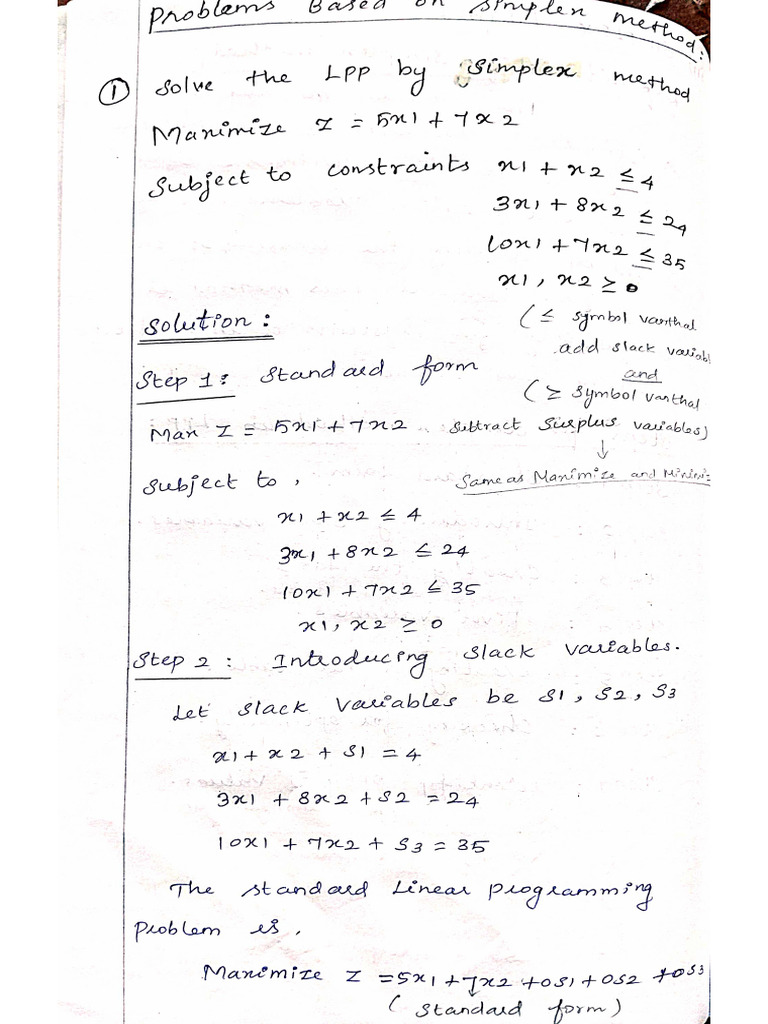 Problems Based on Simplex method:
① Solve the LPP by Simplex method
Maximize Z = 5x1 + 7x2
Subject to constraints x1 + x2 ≤ 4
3x1 + 8x2 ≤ 24
10x1 + 7x2 ≤ 35
x1, x2 ≥ 0
Solution:
(≤ symbol vanthal
add slack variabl
and
Step 1: Standard form
(≥ symbol vanthal
Max Z = 5x1 + 7x2
subtract surplus variables)
↓
Same as Maximize and Minimi
Subject to,
x1 + x2 ≤ 4
3x1 + 8x2 ≤ 24
10x1 + 7x2 ≤ 35
x1, x2 ≥ 0
Step 2: Introducing slack variables.
Let slack variables be S1, S2, S3
x1 + x2 + S1 = 4
3x1 + 8x2 + S2 = 24
10x1 + 7x2 + S3 = 35
The standard Linear programming
problem is,
Maximize Z = 5x1 + 7x2 + 0S1 + 0S2 + 0S3
(standard form)